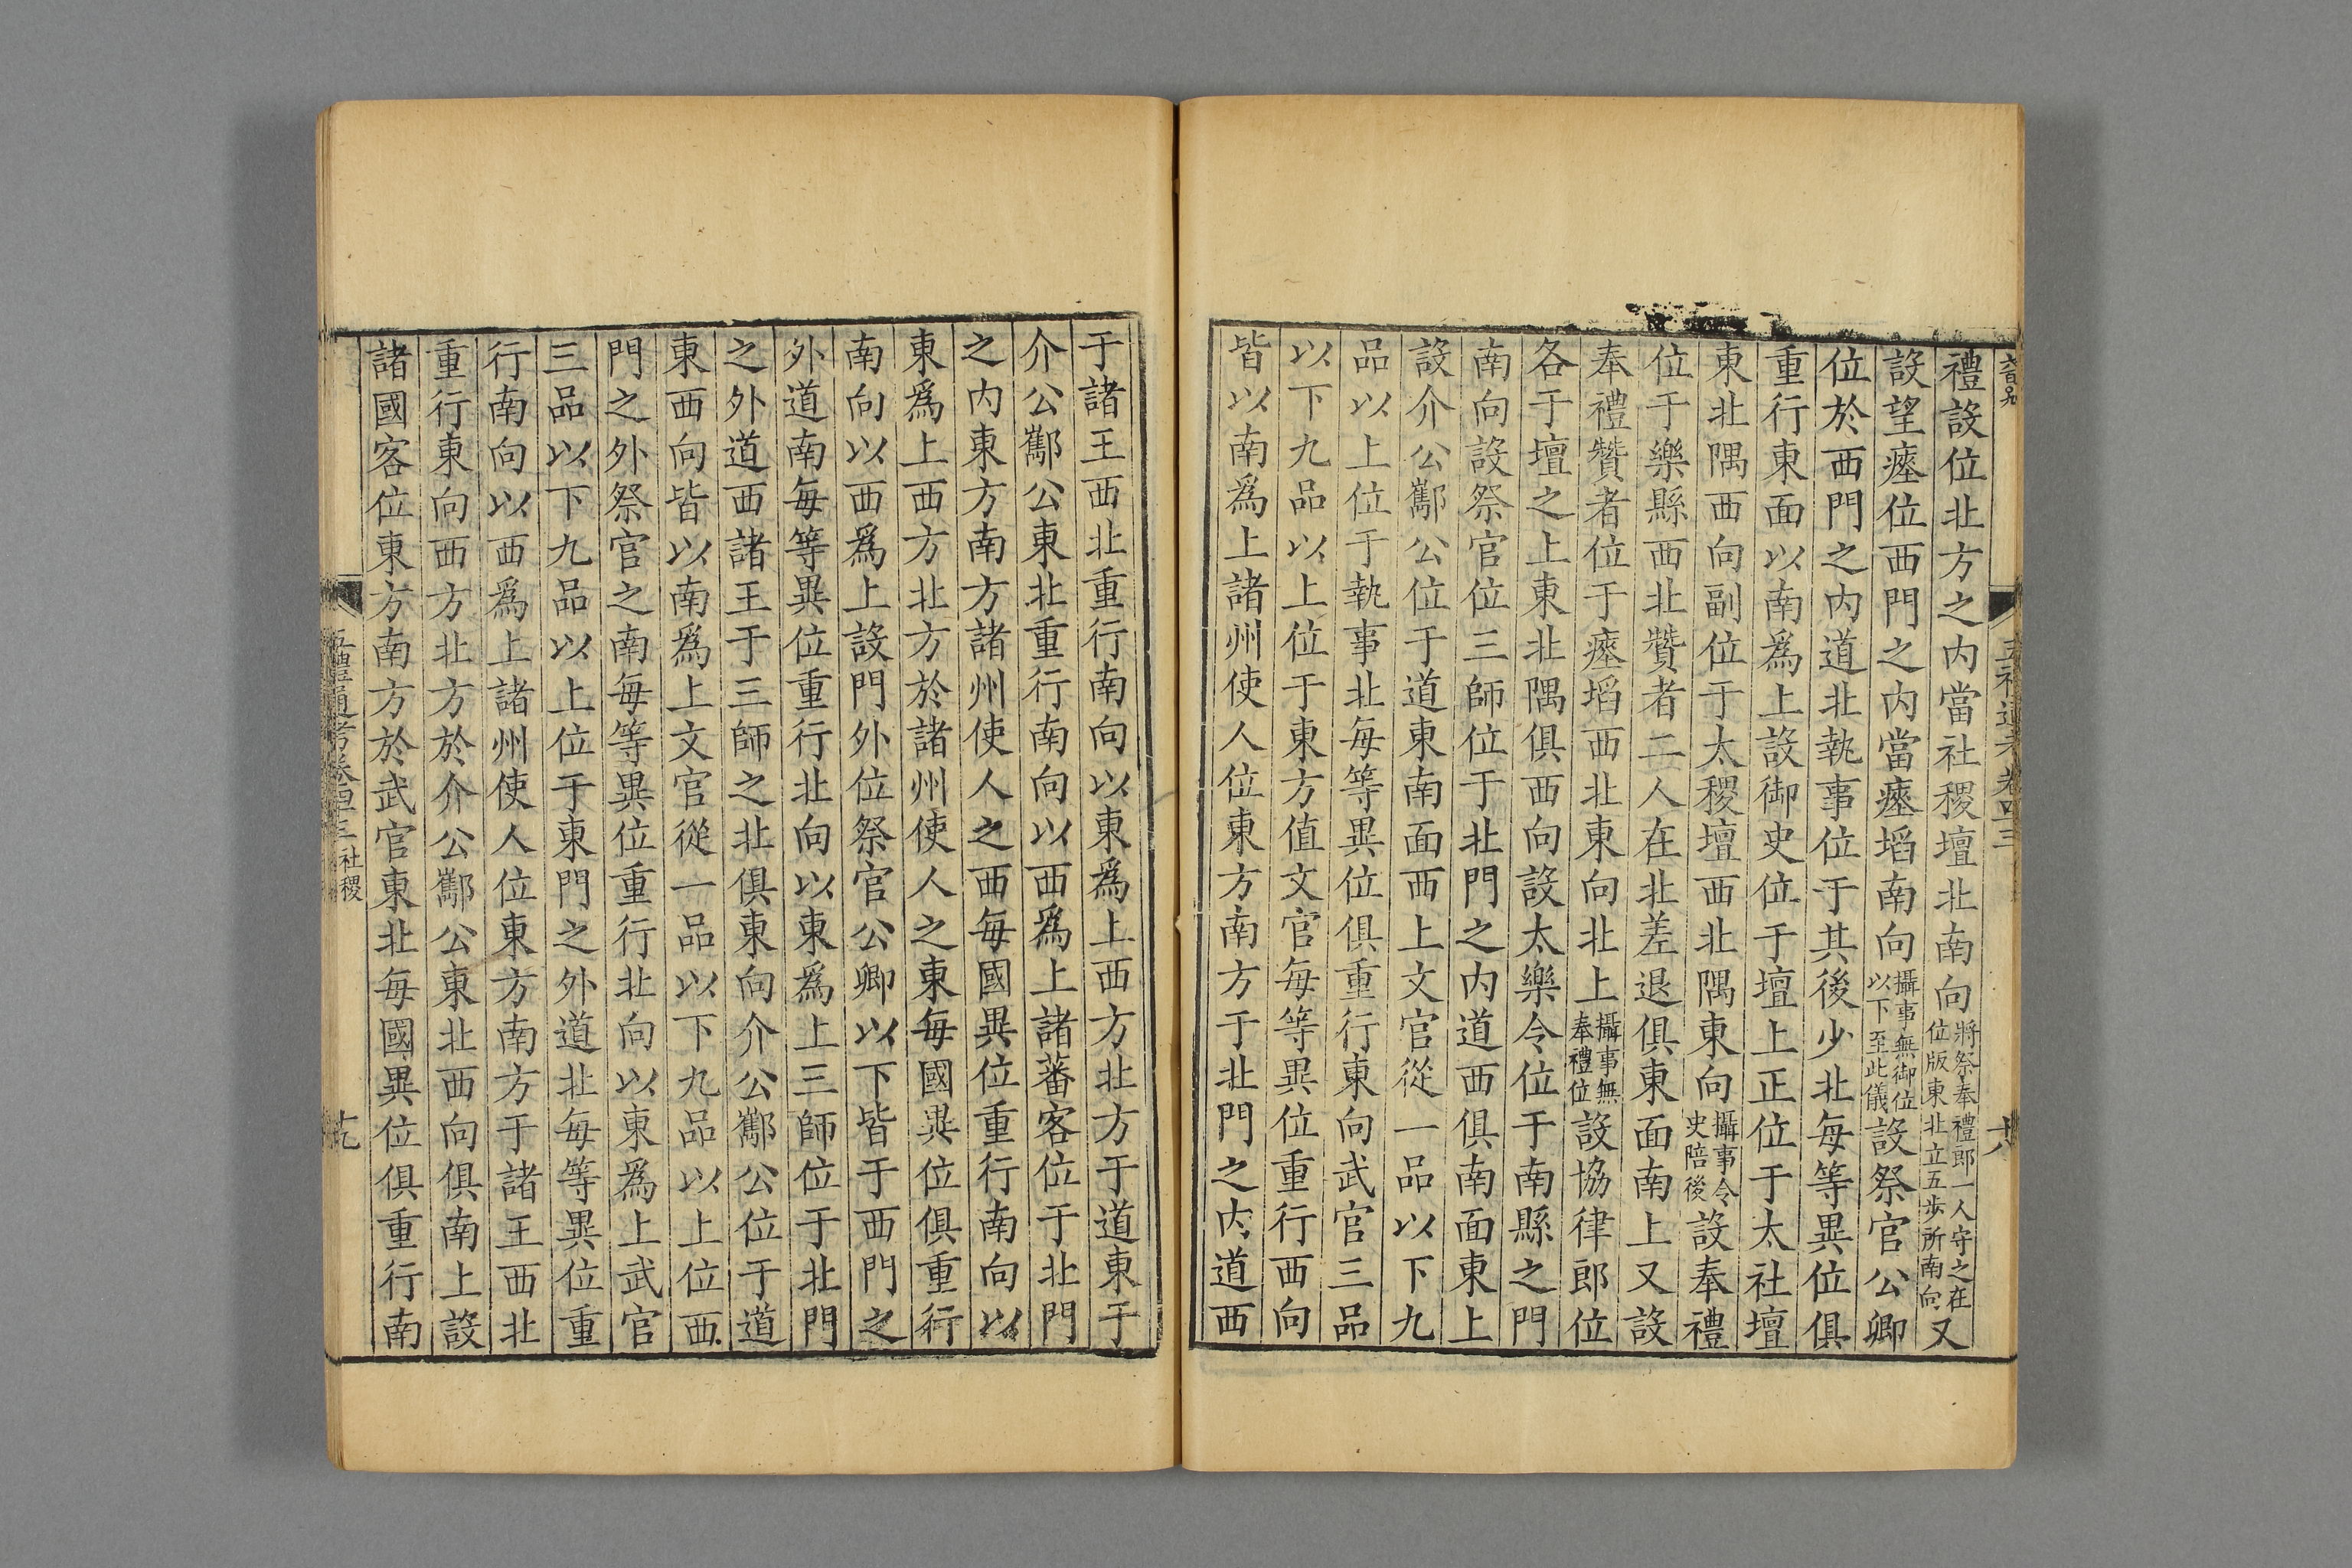 禮設位北方之內當社稷壇北南向將祭奉禮郎一人守之在位版東北立五步所南向又
設望瘞位西門之內當瘞埳南向攝事無御位以下至此儀設祭官公卿
位於西門之內道北執事位于其後少北每等異位俱
重行東面以南爲上設御史位于壇上正位于太社壇
東北隅西向副位于太稷壇西北隅東向攝事令史陪後設奉禮
位于樂縣西北贊者二人在北差退俱東面南上又設
奉禮贊者位于瘞埳西北東向北上攝事無奉禮位設協律郎位
各于壇之上東北隅俱西向設太樂令位于南縣之門
南向設祭官位三師位于北門之內道西俱南面東上
設介公酅公位于道東南面西上文官從一品以下九
品以上位于執事北每等異位俱重行東向武官三品
以下九品以上位于東方值文官每等異位重行西向
皆以南爲上諸州使人位東方南方于北門之內道西
于諸王西北重行南向以東爲上西方北方于道東于
介公酅公東北重行南向以西爲上諸蕃客位于北門
之內東方南方諸州使人之西每國異位重行南向以
東爲上西方北方於諸州使人之東每國異位俱重行
南向以西爲上設門外位祭官公卿以下皆于西門之
外道南每等異位重行北向以東爲上三師位于北門
之外道西諸王于三師之北俱東向介公酅公位于道
東西向皆以南爲上文官從一品以下九品以上位西
門之外祭官之南每等異位重行北向以東爲上武官
三品以下九品以上位于東門之外道北每等異位重
行南向以西爲上諸州使人位東方南方于諸王西北
重行東向西方北方於介公酅公東北西向俱南上設
諸國客位東方南方於武官東北每國異位俱重行南
五禮通考卷四十三 社稷
十九